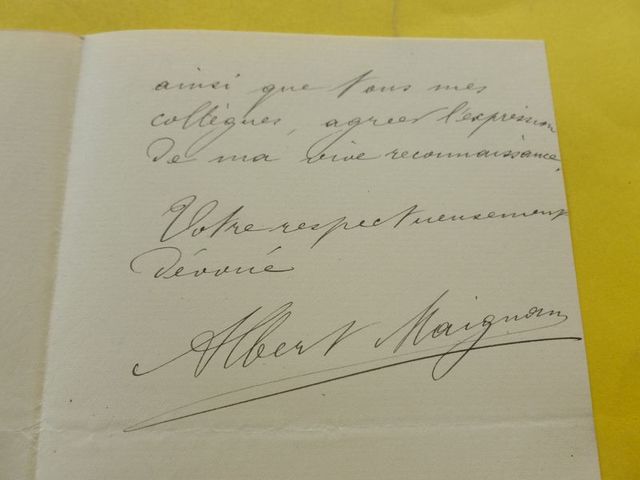 ainsi que tous mes
collègues, agréer l'expression
de ma vive reconnaissance.
Votre respectueusement
dévoué
Albert Maignan